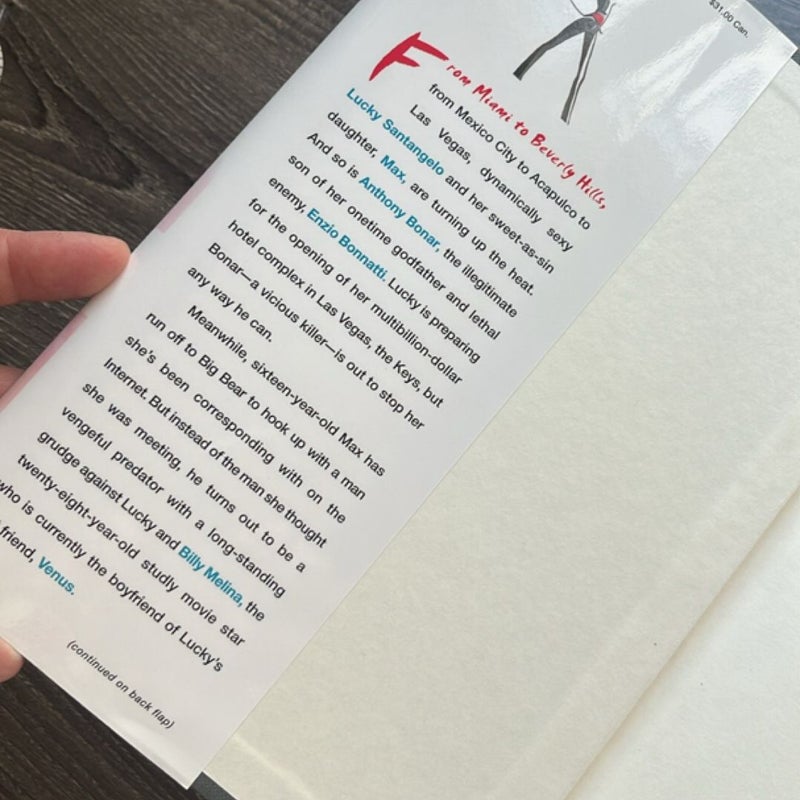 $31.00 Can.
From Miami to Beverly Hills,
from Mexico City to Acapulco to
Las Vegas, dynamically sexy
Lucky Santangelo and her sweet-as-sin
daughter, Max, are turning up the heat.
And so is Anthony Bonar, the illegitimate
son of her onetime godfather and lethal
enemy, Enzio Bonnatti. Lucky is preparing
for the opening of her multibillion-dollar
hotel complex in Las Vegas, the Keys, but
Bonar—a vicious killer—is out to stop her
any way he can.
Meanwhile, sixteen-year-old Max has
run off to Big Bear to hook up with a man
she's been corresponding with on the
Internet. But instead of the man she thought
she was meeting, he turns out to be a
vengeful predator with a long-standing
grudge against Lucky and Billy Melina, the
twenty-eight-year-old studly movie star
who is currently the boyfriend of Lucky's
friend, Venus.
(continued on back flap)